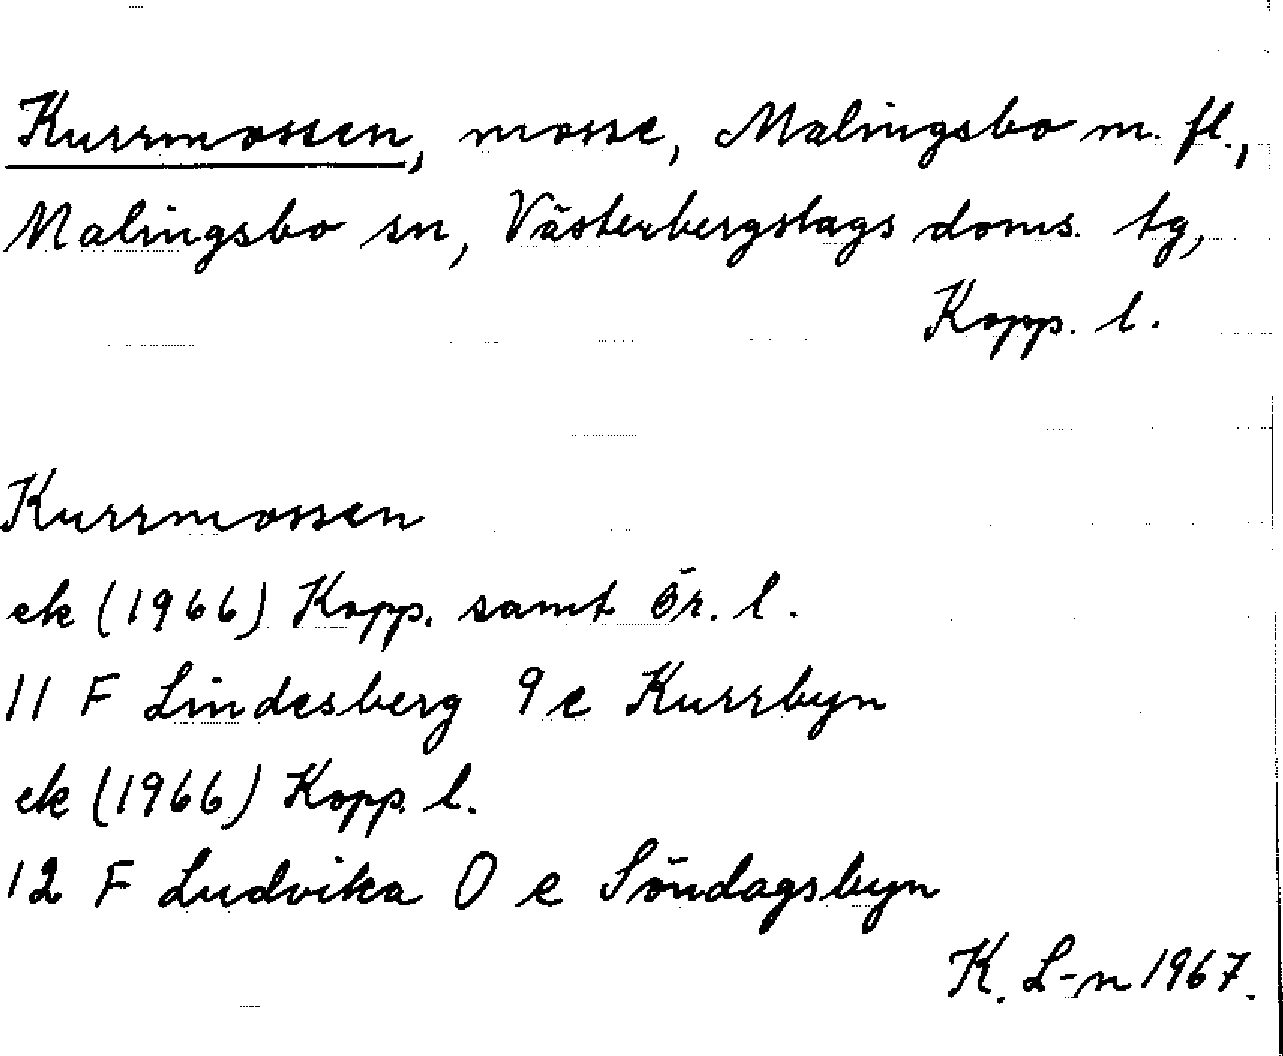 Kurrmossen, mosse, Malingsbo m. fl.,
Malingsbo sn, Västerbergslags doms. tg,
Kopp. l.
Kurrmossen
ek (1966) Kopp. samt Ör. l.
11 F Lindesberg 9 e Kurrbyn
ek (1966) Kopp. l.
12 F Ludvika 0 e Söndagsbyn
K. L-n 1967.